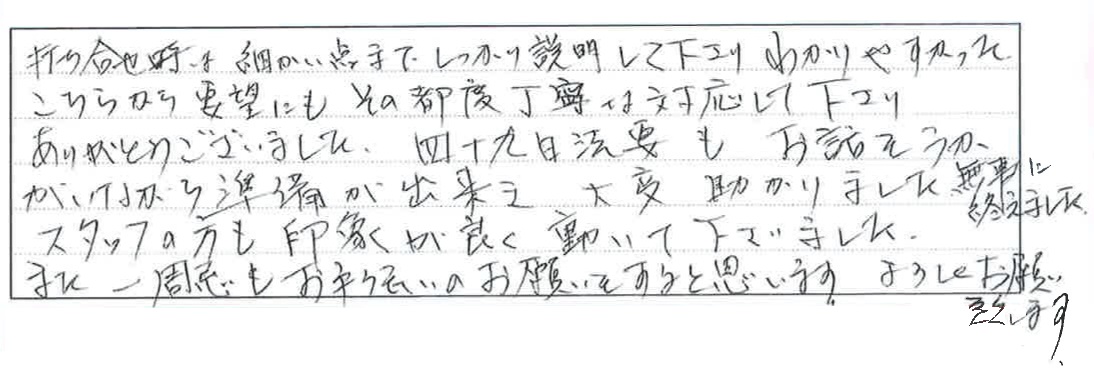 打ち合せ時は細かい点までしっかり説明して下さりわかりやすかった
こちらから要望にもその都度丁寧に対応して下さり
ありがとうございました。四十九日法要もお話をうか
がいながら準備が出来て大変助かりました 無事に
終えました
スタッフの方も印象が良く動いて下さいました。
また一周忌もお手伝いのお願いをすると思います。よろしくお願い
致します